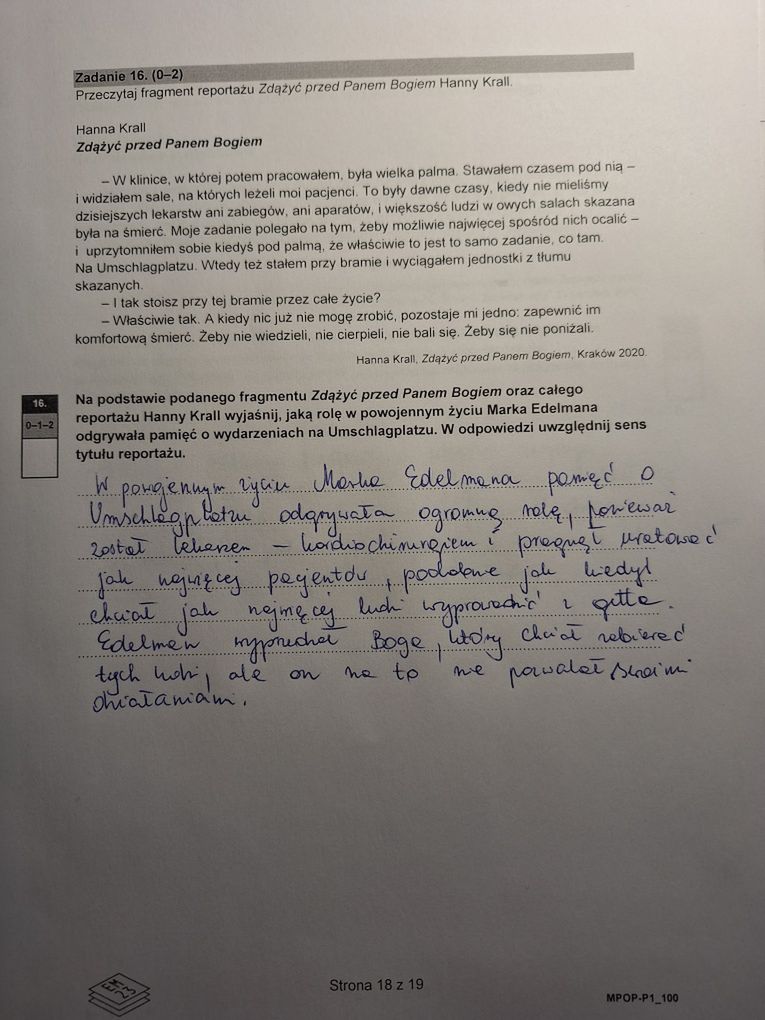 Zadanie 16. (0–2)
Przeczytaj fragment reportażu Zdążyć przed Panem Bogiem Hanny Krall.
Hanna Krall
Zdążyć przed Panem Bogiem
– W klinice, w której potem pracowałem, była wielka palma. Stawałem czasem pod nią –
i widziałem sale, na których leżeli moi pacjenci. To były dawne czasy, kiedy nie mieliśmy
dzisiejszych lekarstw ani zabiegów, ani aparatów, i większość ludzi w owych salach skazana
była na śmierć. Moje zadanie polegało na tym, żeby możliwie najwięcej spośród nich ocalić –
i uprzytomniłem sobie kiedyś pod palmą, że właściwie to jest to samo zadanie, co tam.
Na Umschlagplatzu. Wtedy też stałem przy bramie i wyciągałem jednostki z tłumu
skazanych.
– I tak stoisz przy tej bramie przez całe życie?
– Właściwie tak. A kiedy nic już nie mogę zrobić, pozostaje mi jedno: zapewnić im
komfortową śmierć. Żeby nie wiedzieli, nie cierpieli, nie bali się. Żeby się nie poniżali.
Hanna Krall, Zdążyć przed Panem Bogiem, Kraków 2020.
16.
0–1–2
Na podstawie podanego fragmentu Zdążyć przed Panem Bogiem oraz całego
reportażu Hanny Krall wyjaśnij, jaką rolę w powojennym życiu Marka Edelmana
odgrywała pamięć o wydarzeniach na Umschlagplatzu. W odpowiedzi uwzględnij sens
tytułu reportażu.
W powojennym życiu Marka Edelmana pamięć o
Umschlagplatzu odgrywała ogromną rolę, ponieważ
został lekarzem – kardiochirurgiem i pragnął uratować
jak najwięcej pacjentów, podobnie jak kiedyś
chciał jak najwięcej ludzi wyprowadzić z getta.
Edelman wyprzedzał Boga, który chciał zabierać
tych ludzi, ale on na to nie pozwalał swoimi
działaniami.
EM
23
Strona 18 z 19
MPOP-P1_100